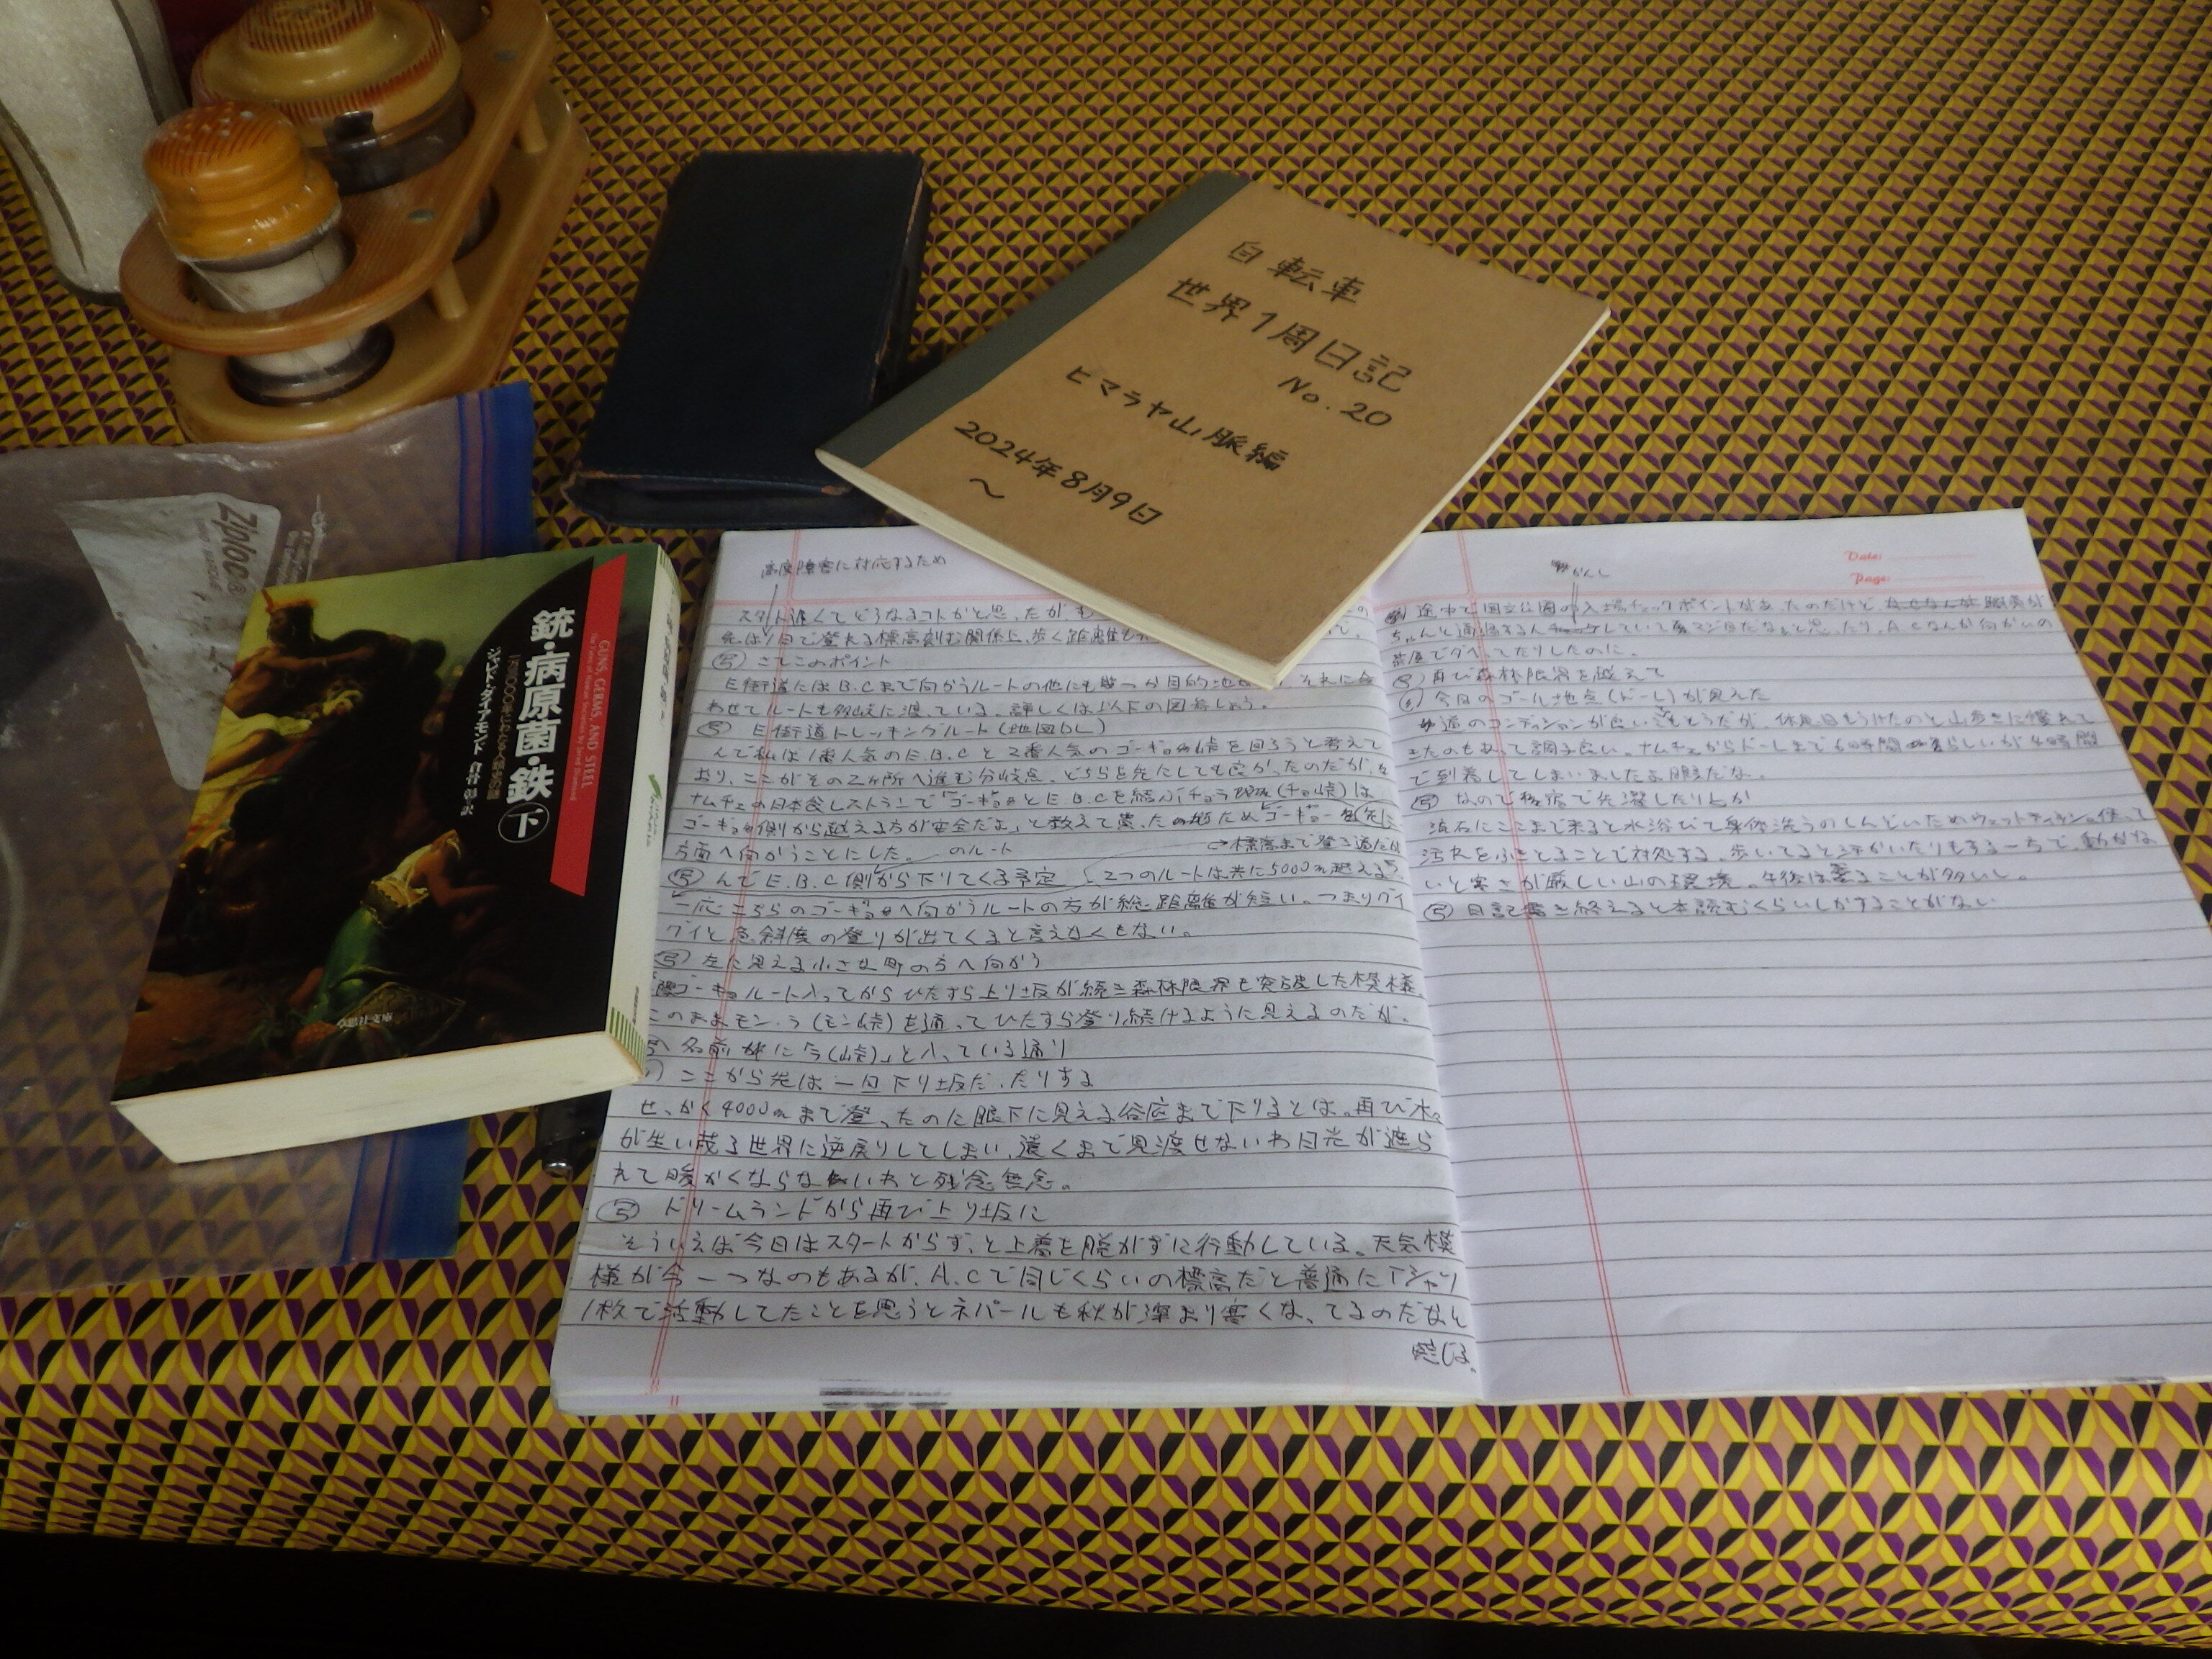 自転車
世界1周日記
No.20
ヒマラヤ山脈編
2024年8月9日
～
Ziploc®
GUNS, GERMS, AND STEEL
銃・病原菌・鉄
下
ジャレド・ダイアモンド 倉骨 彰 訳
草思社文庫
高度障害に対応するため
スタート遅くてどうなるコトかと思ったが、
先は1日で登れる標高刻む関係上、歩く距離も
写 さてこのポイント
E街道にはB.Cまで向かうルートの他にも幾つか目的地 それに合
わせてルートも多岐に渡っている。詳しくは以下の図
写 E街道トレッキングルート(地図
んで私は1番人気のE.B.Cと2番人気のゴーキョ を回ろうと考えて
おり、ここがその2ヶ所へ進む分岐点。どちらを先にしても良かったのだが、
ナムチェの日本食レストランで「ゴーキョとE.B.Cを結ぶ、チョラ (チョ峠)は
ゴーキョ側から越える方が安全だよ」と教えて貰った ためゴーキョ 先に
方面へ向かうことにした。 のルート
写 んでE.B.C側から下りてくる予定 2つのルートは共に5000m越える
一応こちらのゴーキョへ向かうルートの方が総距離が短い。つまりグイ
グイと急斜度の登りが出てくると言えなくもない。
写 左に見える小さな町の方へ向かう
ゴーキョルート入ってからひたすら上り坂が続き森林限界を突破した模様。
このままモン・ラ(モン峠)を通ってひたすら登り続けるように見えるのだが。
写 名前 に「ラ(峠)」と入っている通り
ここから先は一旦下り坂だったりする
せっかく4000mまで登ったのに眼下に見える谷底まで下りるとは。再び木々
が生い茂る世界に逆戻りしてしまい、遠くまで見渡せないわ日光が遮ら
れて暖かくならないわと残念無念。
写 ドリームランドから再び上り坂に
そういえば今日はスタートからずっと上着を脱がずに行動している。天気模
様が今一つなのもあるが、A.Cで同じくらいの標高だと普通にTシャツ
1枚で活動してたことを思うとネパールも秋が深まり寒くなってるのだなと
感じる。
Date:
Page:
かんし
途中で国立公園の入場チェックポイントがあったのだけど、
ちゃんと通過する人 していてマジメだなぁと思ったり。A.Cなんか向かいの
茶屋でダベってたりしたのに。
写 再び森林限界を越えて
写 今日のゴール地点(ドーレ)が見えた
道のコンディションが良い そうだが、休息日もうけたのと山歩きに慣れて
きたのもあって調子良い。ナムチェからドーレまで6時間 らしいが4時間
で到着してしまいましたよ 暇だな。
写 なので 宿で洗濯したりとか
流石にここまで来ると水浴びて身体洗うのしんどいためウェットティッシュ使って
汚れをふきとることで対処する。歩いてると汗かいたりもする一方で、動かな
いと寒さが厳しい山の環境。午後は曇ることが多いし。
写 日記書き終えると本読むくらいしかすることがない